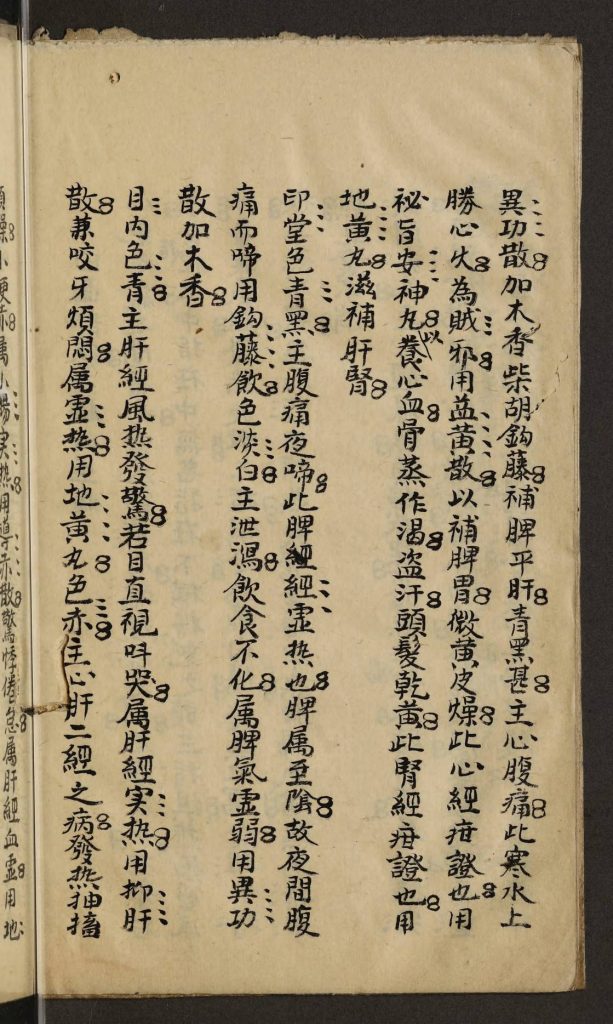 異功散加木香柴胡鈎藤補脾平肝青黑甚主心腹痛此寒水上
勝心火為賊邪用益黃散以補脾胃微黃皮燥此心經疳證也用
秘旨安神丸以養心血骨蒸作渴盗汗頭髮乾黃此腎經疳證也用
地黃丸滋補肝腎
印堂色青黑主腹痛夜啼此脾經經虛热也脾属至陰故夜間腹
痛而啼用鈎藤飲色淡白主泄瀉飲食不化属脾氣虛弱用異功
散加木香
目内色青主肝經風热發驚若目直視呌哭属肝經实热用抑肝
散兼咬牙煩悶属虛热用地黃丸色赤主心肝二經之病發热抽搐
煩燥小便赤属小腸实热用導赤散驚悸倦怠属肝經血虛用地